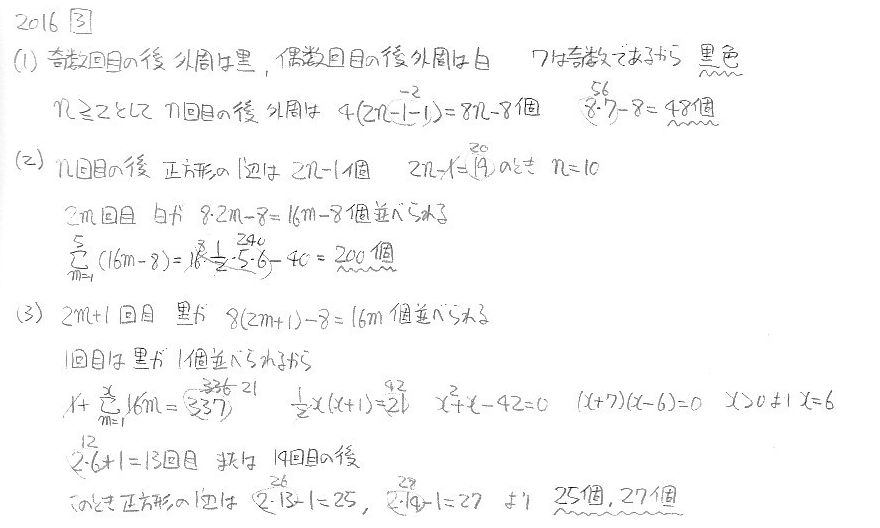 2016 3
(1) 奇数回目の後 外周は黒, 偶数回目の後外周は白 7は奇数であるから 黒色
n≧2として n回目の後 外周は 4(2n-1-1)=8n-8個 8・7-8=48個
-2 56
(2) n回目の後 正方形の1辺は 2n-1個 2n-1=19のとき n=10
20
2m回目 白が 8・2m-8=16m-8個並べられる
5 Σ m=1 (16m-8)=16・1/2・5・6-40=200個
8 240
(3) 2m+1回目 黒が 8(2m+1)-8=16m個並べられる
1回目は黒が1個並べられるから
1+ x Σ m=1 16m=337 1/2x(x+1)=21 x²+x-42=0 (x+7)(x-6)=0 x>0より x=6
336 21 42
2・6+1=13回目 または 14回目の後
12
このとき正方形の1辺は 2・13-1=25, 2・14-1=27 より 25個, 27個
26 28